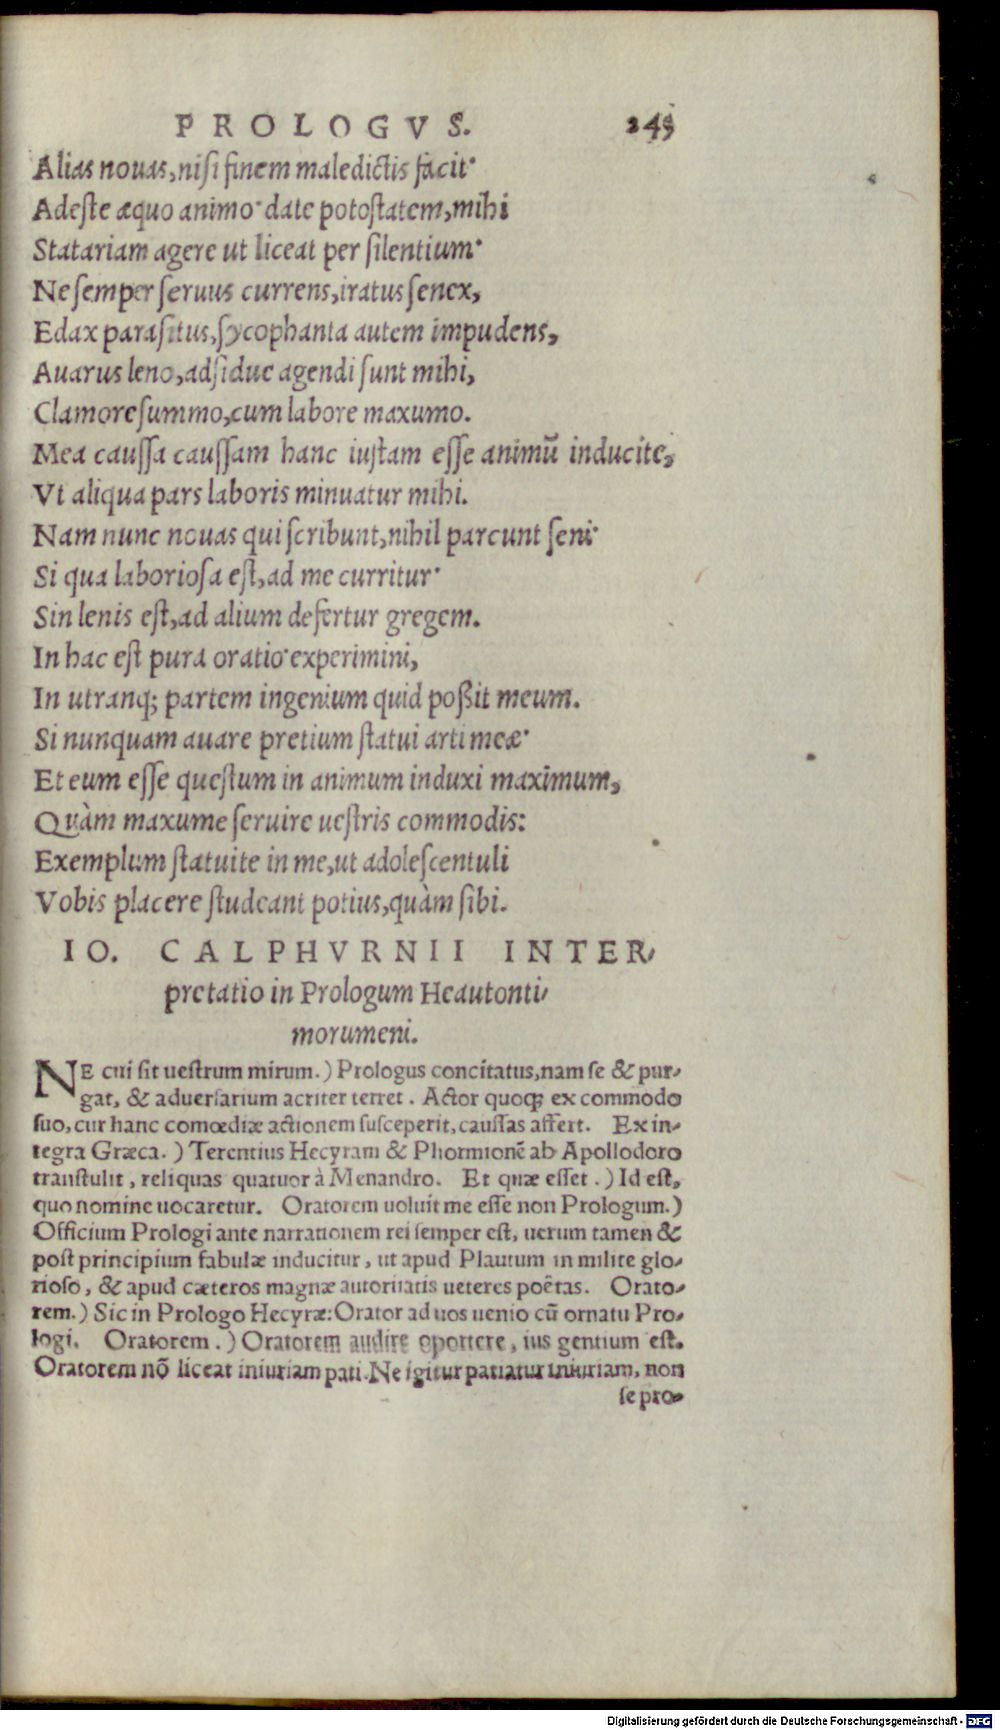 PROLOGVS. 245
Alias nouas, niſi finem maledictis facit·
Adeſte æquo animo· date potoſtatem, mihi
Statariam agere ut liceat per ſilentium·
Ne ſemper ſeruus currens, iratus ſenex,
Edax paraſitus, ſycophanta autem impudens,
Auarus leno, adſidue agendi ſunt mihi,
Clamore ſummo, cum labore maxumo.
Mea cauſſa cauſſam hanc iuſtam eſſe animū inducite,
Vt aliqua pars laboris minuatur mihi.
Nam nunc nouas qui ſcribunt, nihil parcunt ſeni·
Si qua laborioſa eſt, ad me curritur·
Sin lenis eſt, ad alium defertur gregem.
In hac eſt pura oratio· experimini,
In utranq; partem ingenium quid poßit meum.
Si nunquam auare pretium ſtatui arti meæ·
Et eum eſſe queſtum in animum induxi maximum,
Quàm maxume ſeruire ueſtris commodis:
Exemplum ſtatuite in me, ut adoleſcentuli
Vobis placere ſtudeant potius, quàm ſibi.
IO. CALPHVRNII INTER-
pretatio in Prologum Heautonti-
morumeni.
NE cui ſit ueſtrum mirum.) Prologus concitatus, nam ſe & pur-
gat, & aduerſarium acriter terret. Actor quoq; ex commodo
ſuo, cur hanc comœdiæ actionem ſuſceperit, cauſſas affert. Ex in-
tegra Græca.) Terentius Hecyram & Phormionē ab Apollodoro
tranſtulit, reliquas quatuor à Menandro. Et quæ eſſet.) Id eſt,
quo nomine uocaretur. Oratorem uoluit me eſſe non Prologum.)
Officium Prologi ante narrationem rei ſemper eſt, uerum tamen &
poſt principium fabulæ inducitur, ut apud Plautum in milite glo-
rioſo, & apud cæteros magnæ autoritatis ueteres poëtas. Orato-
rem.) Sic in Prologo Hecyræ: Orator ad uos uenio cū ornatu Pro-
logi. Oratorem.) Oratorem audire oportere, ius gentium eſt.
Oratorem nō liceat iniuriam pati. Ne igitur patiatur iniuriam, non
ſe pro-
Digitalisierung gefördert durch die Deutsche Forschungsgemeinschaft - DFG